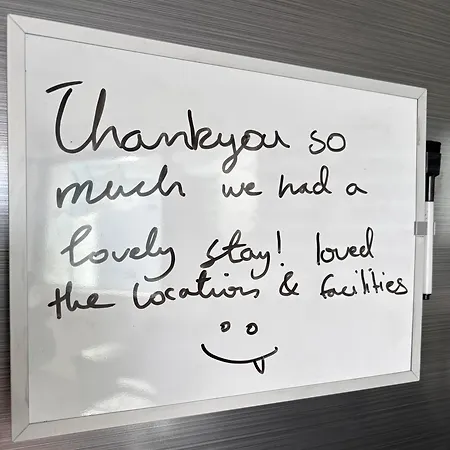 Thankyou so
much we had a
lovely stay! loved
the location & facilities